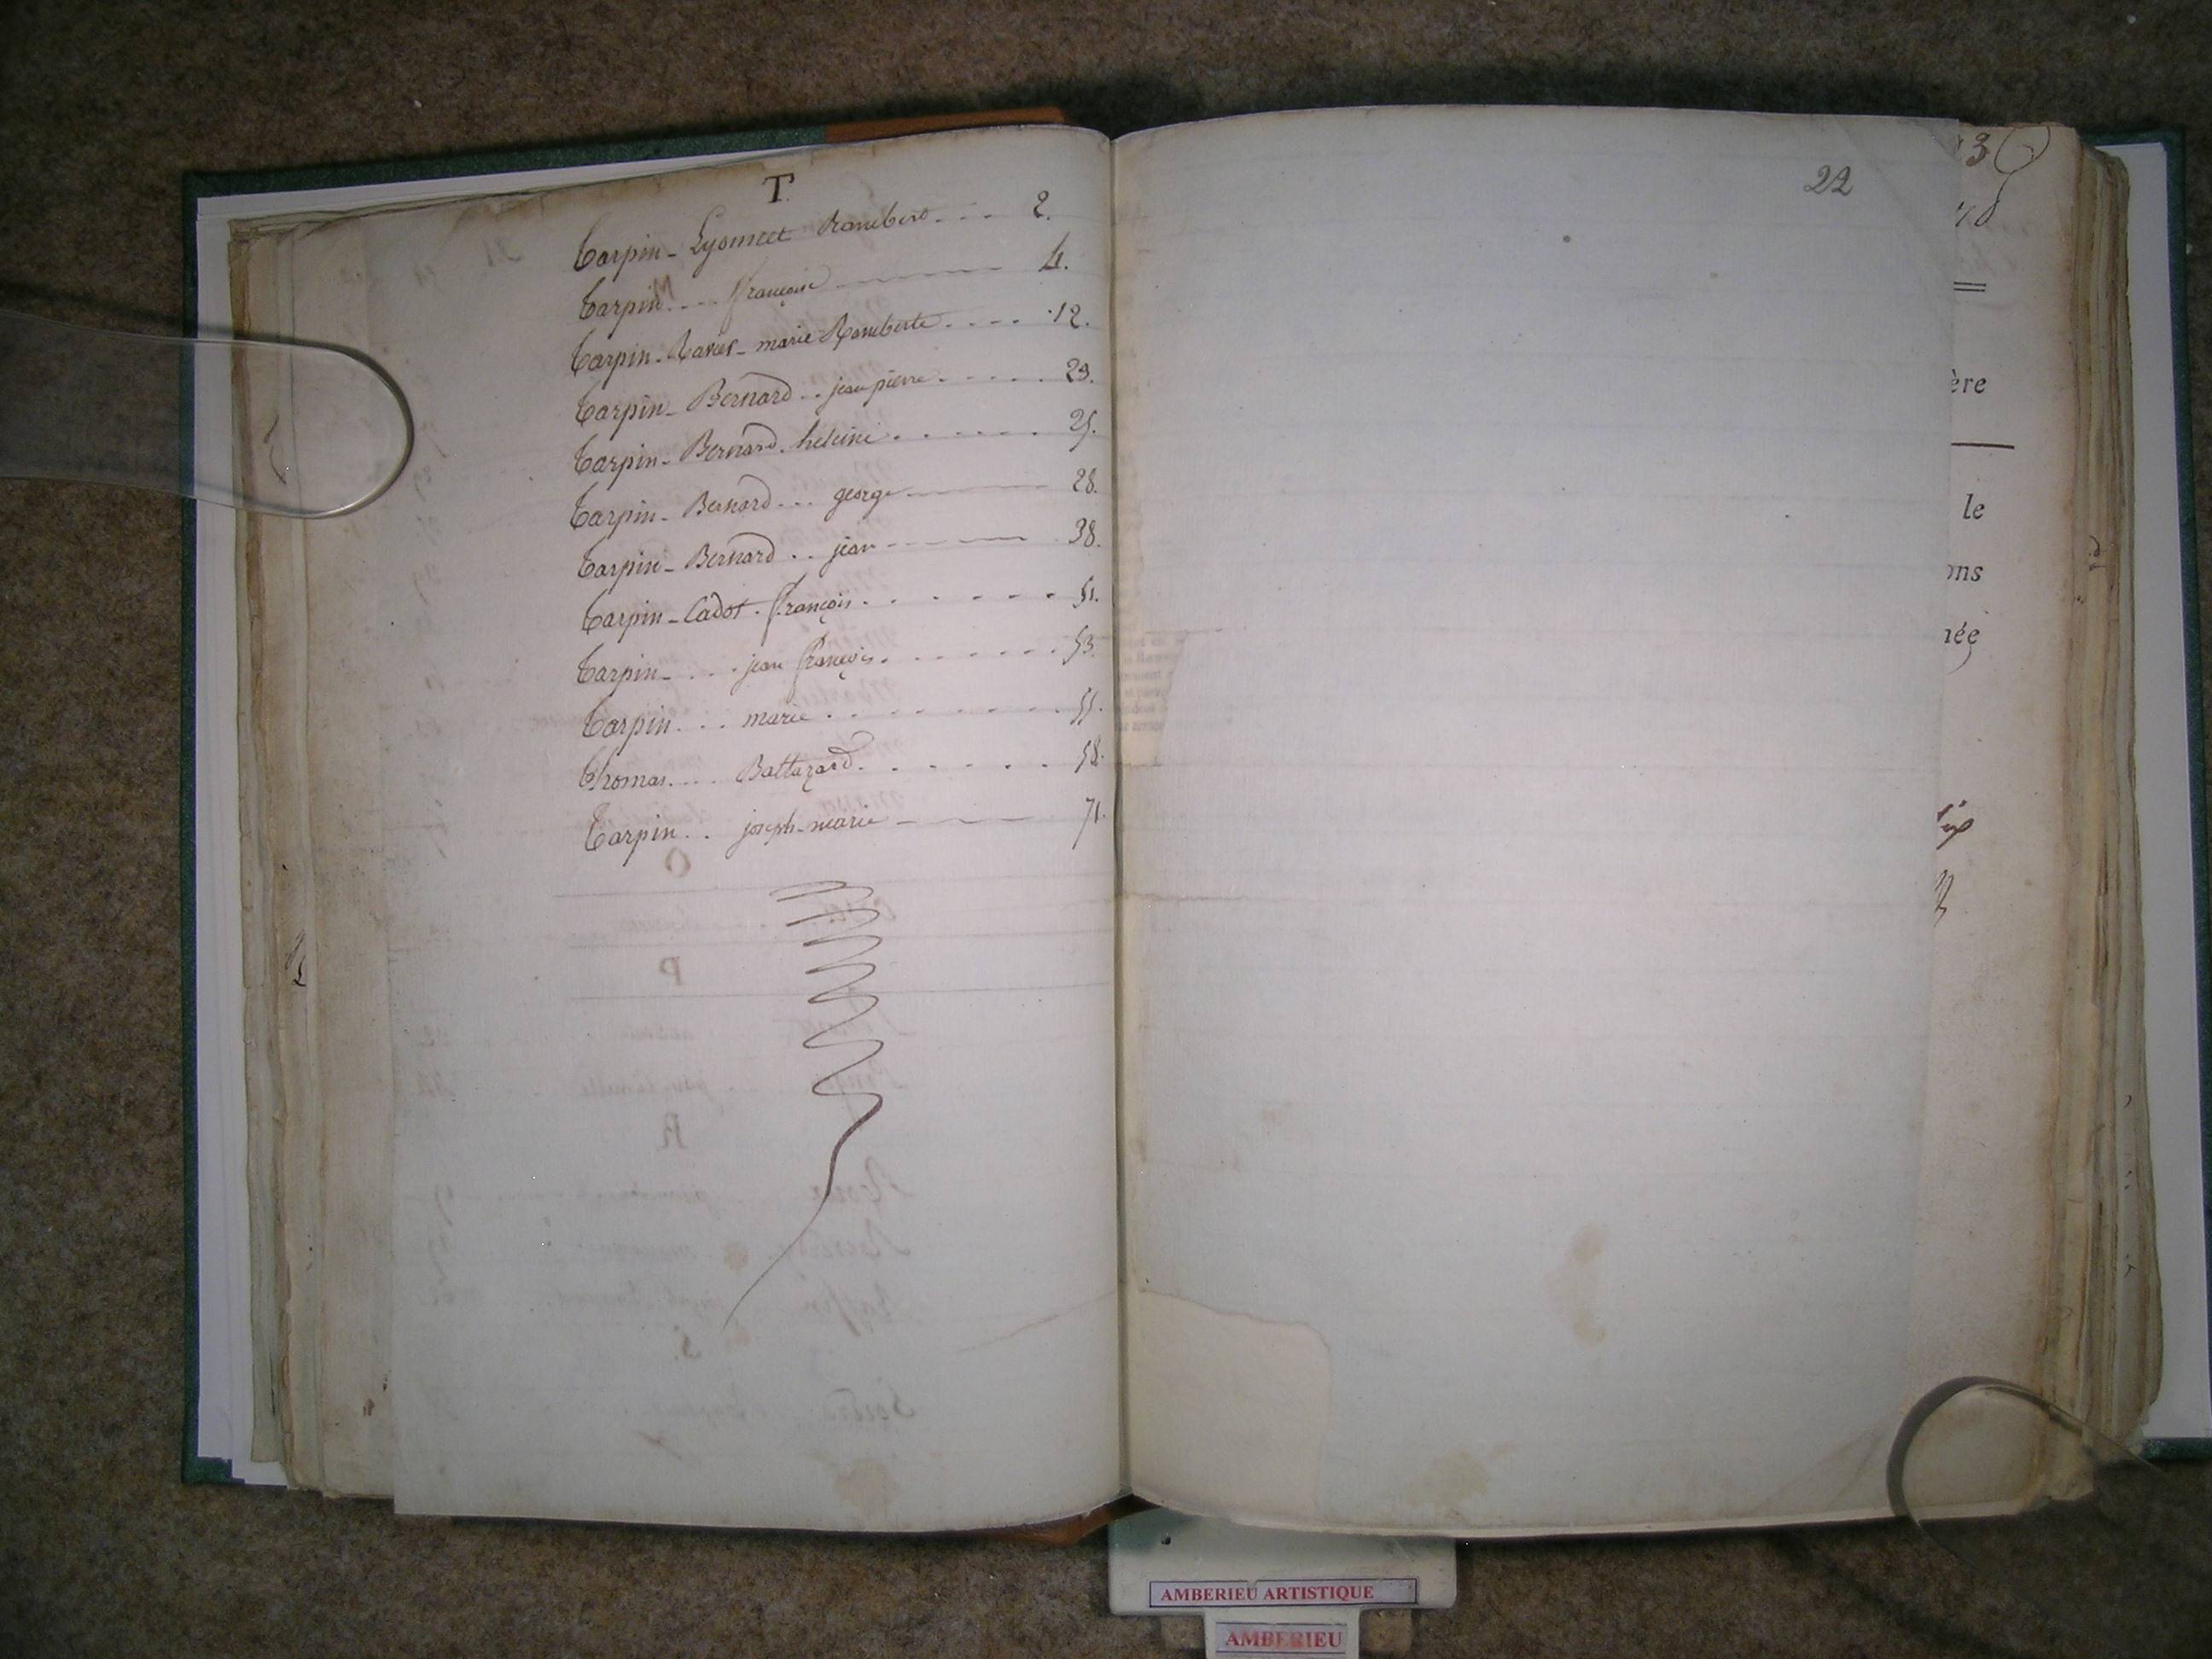 T.
Tarpin - Lyonnet Rambert - - - 2.
Tarpin - - - françoise - - - 4.
Tarpin - Ravier - marie Ramberte - - - - 12.
Tarpin - Bernard - - jean pierre - - - - - 23.
Tarpin - Bernard - heleine - - - - - - 25.
Tarpin - Bernard - - - george - - - 28.
Tarpin - Bernard - - jean - - - 38.
Tarpin - Cadot - françois - - - - - - 51.
Tarpin - - - jean françois - - - - - - - 53.
Tarpin - - - marie - - - - - - - 55.
Thomas - - - Baltazard - - - - - - 58.
Tarpin - - joseph-marie - - - 71.
22
3
ère
le
ons
née
AMBERIEU ARTISTIQUE
AMBERIEU